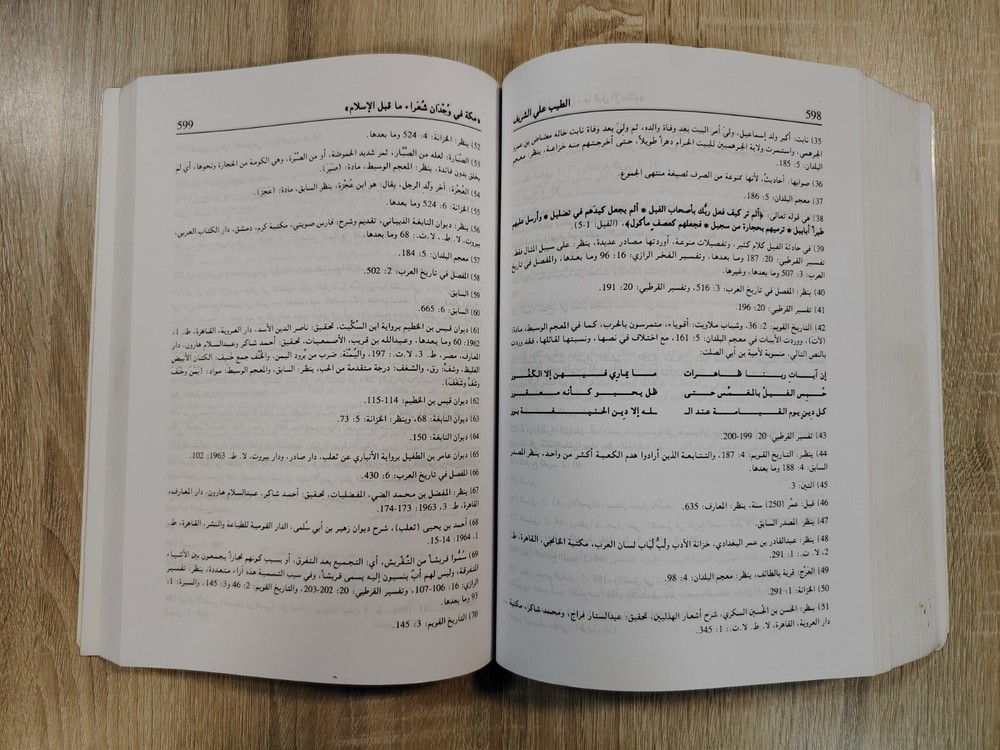 598
الطيب علي الشريف
35) نابت: أكبر ولد إسماعيل، ولي أمر البيت بعد وفاة والده، ثم ولي بعد وفاة نابت خاله مضاض بن عمرو
الجرهمي، واستمرت ولاية الجرهميين للبيت الحرام دهراً طويلاً، حتى أخرجتهم منه خزاعة، ينظر: معجم
البلدان: 5: 185.
36) صوابها: أحاديثُ، لأنها ممنوعة من الصرف لصيغة منتهى الجموع.
37) معجم البلدان: 5: 186.
38) هي قوله تعالى: ﴿ألم تر كيف فعل ربُّك بأصحاب الفيل * ألم يجعل كيدَهم في تضليل * وأرسل عليهم
طيراً أبابيل * ترميهم بحجارة من سجيل * فجعلهم كعصفٍ مأكول﴾، (الفيل: 1-5).
39) في حادثة الفيل كلام كثير، وتفصيلات منوعة، أوردتها مصادر عديدة، ينظر: على سبيل المثال فقط
تفسير القرطبي: 20: 187 وما بعدها، وتفسير الفخر الرازي: 16: 96 وما بعدها، والمفصل في تاريخ
العرب: 3: 507 وما بعدها، وغيرها.
40) ينظر: المفصل في تاريخ العرب: 3: 516، وتفسير القرطبي: 20: 191.
41) تفسير القرطبي: 20: 196.
42) التاريخ القويم: 2: 36، وشباب ملاويث: أقوياء، متمرسون بالحرب، كما في المعجم الوسيط، مادة:
(لاث)، ووردت الأبيات في معجم البلدان: 5: 161، مع اختلاف في نصها، ونسبتها لقائلها، فقد وردت
بالنص التالي، منسوبة لأمية بن أبي الصلت:
إن آيات ربنا ظاهرات ما يماري فيهن إلا الكفور
حُبس الفيلُ بالمغمَّس حتى ظل يحبو كأنه معقور
كل دين يوم القيامة عند الـ ـله إلا دين الحنيفة بور
43) تفسير القرطبي: 20: 199-200.
44) ينظر: التاريخ القويم: 4: 187، والتتابعة الذين أرادوا هدم الكعبة أكثر من واحد، ينظر المصدر
السابق: 4: 188 وما بعدها.
45) التين: 3.
46) قيل: عمَّر (250) سنة، ينظر: المعارف: 635.
47) ينظر: المصدر السابق.
48) ينظر: عبدالقادر بن عمر البغدادي، خزانة الأدب ولُبُّ لُباب لسان العرب، مكتبة الخانجي، القاهرة، ط.
2، لا. ت.: 1: 291.
49) العَرْج: قرية بالطائف، ينظر: معجم البلدان: 4: 98.
50) الخزانة: 1: 291.
51) ينظر: الحسن بن الحُسين السكري، شرح أشعار الهذليين، تحقيق: عبدالستار فراج، ومحمود شاكر، مكتبة
دار العروبة، القاهرة، لا. ط. لا.ت.: 1: 345.
«مكة في وُجْدَان شُعَراء ما قبل الإسلام»
599
52) ينظر: الخزانة: 4: 524 وما بعدها.
53) الصَّبَارة: لعله من الصُّبَار، ثمر شديد الحموضة، أو من الصُّبْرة، وهي الكومة من الحجارة ونحوها، أي لم
يخلق بدون فائدة، ينظر: المعجم الوسيط، مادة: (صَبَرَ).
54) العُجْزة: آخر ولد الرجل، يقال: هو ابن عُجْزة، ينظر السابق، مادة: (عَجَزَ).
55) الخزانة: 6: 524 وما بعدها.
56) ينظر: ديوان النابغة الذبياني، تقديم وشرح: فارس صويتي، مكتبة كرم، دمشق، دار الكتاب العربي،
بيروت، لا. ط.، لا.ت.: 68 وما بعدها.
57) معجم البلدان: 5: 184.
58) المفصل في تاريخ العرب: 2: 502.
59) السابق.
60) السابق: 6: 665.
61) ديوان قيس بن الخطيم برواية ابن السكِّيت، تحقيق: ناصر الدين الأسد، دار العروبة، القاهرة، ط. 1،
1962: 60 وما بعدها، وعبدالله بن قريب، الأصمعيات، تحقيق: أحمد شاكر وعبدالسلام هارون، دار
المعارف، مصر، ط. 3، لا.ت.: 197، واليُمْنَة: ضرب من برود اليمن، والخُنُف جمع خَنيف: الكتان الأبيض
الغليظ، وشفَّ: رق، والشغف: درجة متقدمة من الحب، ينظر: السابق، والمعجم الوسيط: مواد: (يَمَنَ وخَنَفَ
وشَفَّ وشَغَفَ).
62) ديوان قيس بن الخطيم: 114-115.
63) ديوان النابغة: 68، وينظر: الخزانة: 5: 73.
64) ديوان النابغة: 150.
65) ديوان عامر بن الطفيل برواية الأنباري عن ثعلب، دار صادر، ودار بيروت، لا. ط. 1963: 102.
66) المفصل في تاريخ العرب: 6: 430.
67) ينظر: المفضل بن محمد الضبي، المفضليات، تحقيق: أحمد شاكر، عبدالسلام هارون، دار المعارف،
القاهرة، ط. 3، 1963: 173-174.
68) أحمد بن يحيى (ثعلب)، شرح ديوان زهير بن أبي سُلمى، الدار القومية للطباعة والنشر، القاهرة، ط.
1، 1964: 14-15.
69) سُمُّوا قريشاً من التَّقْريش، أي: التجميع بعد التفرق، أو بسبب كونهم تجاراً يجمعون بين الأشياء
المتفرقة، وليس لهم أبٌ ينتسبون إليه يسمى قريشاً، وفي سبب التسمية هذه آراء متعددة، ينظر: تفسير
الرازي: 16: 106-107، وتفسير القرطبي: 20: 202-203، والتاريخ القويم: 2: 46 و3: 145، والسيرة: 1:
93 وما بعدها.
70) التاريخ القويم: 3: 145.